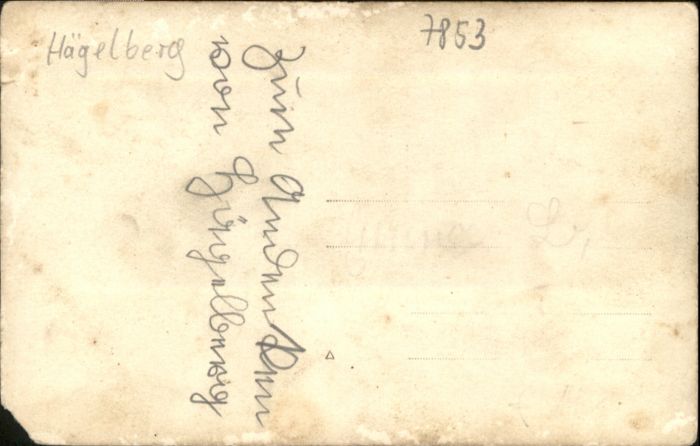 Hägelberg
7853
Zum Andenken
von Hägelberg